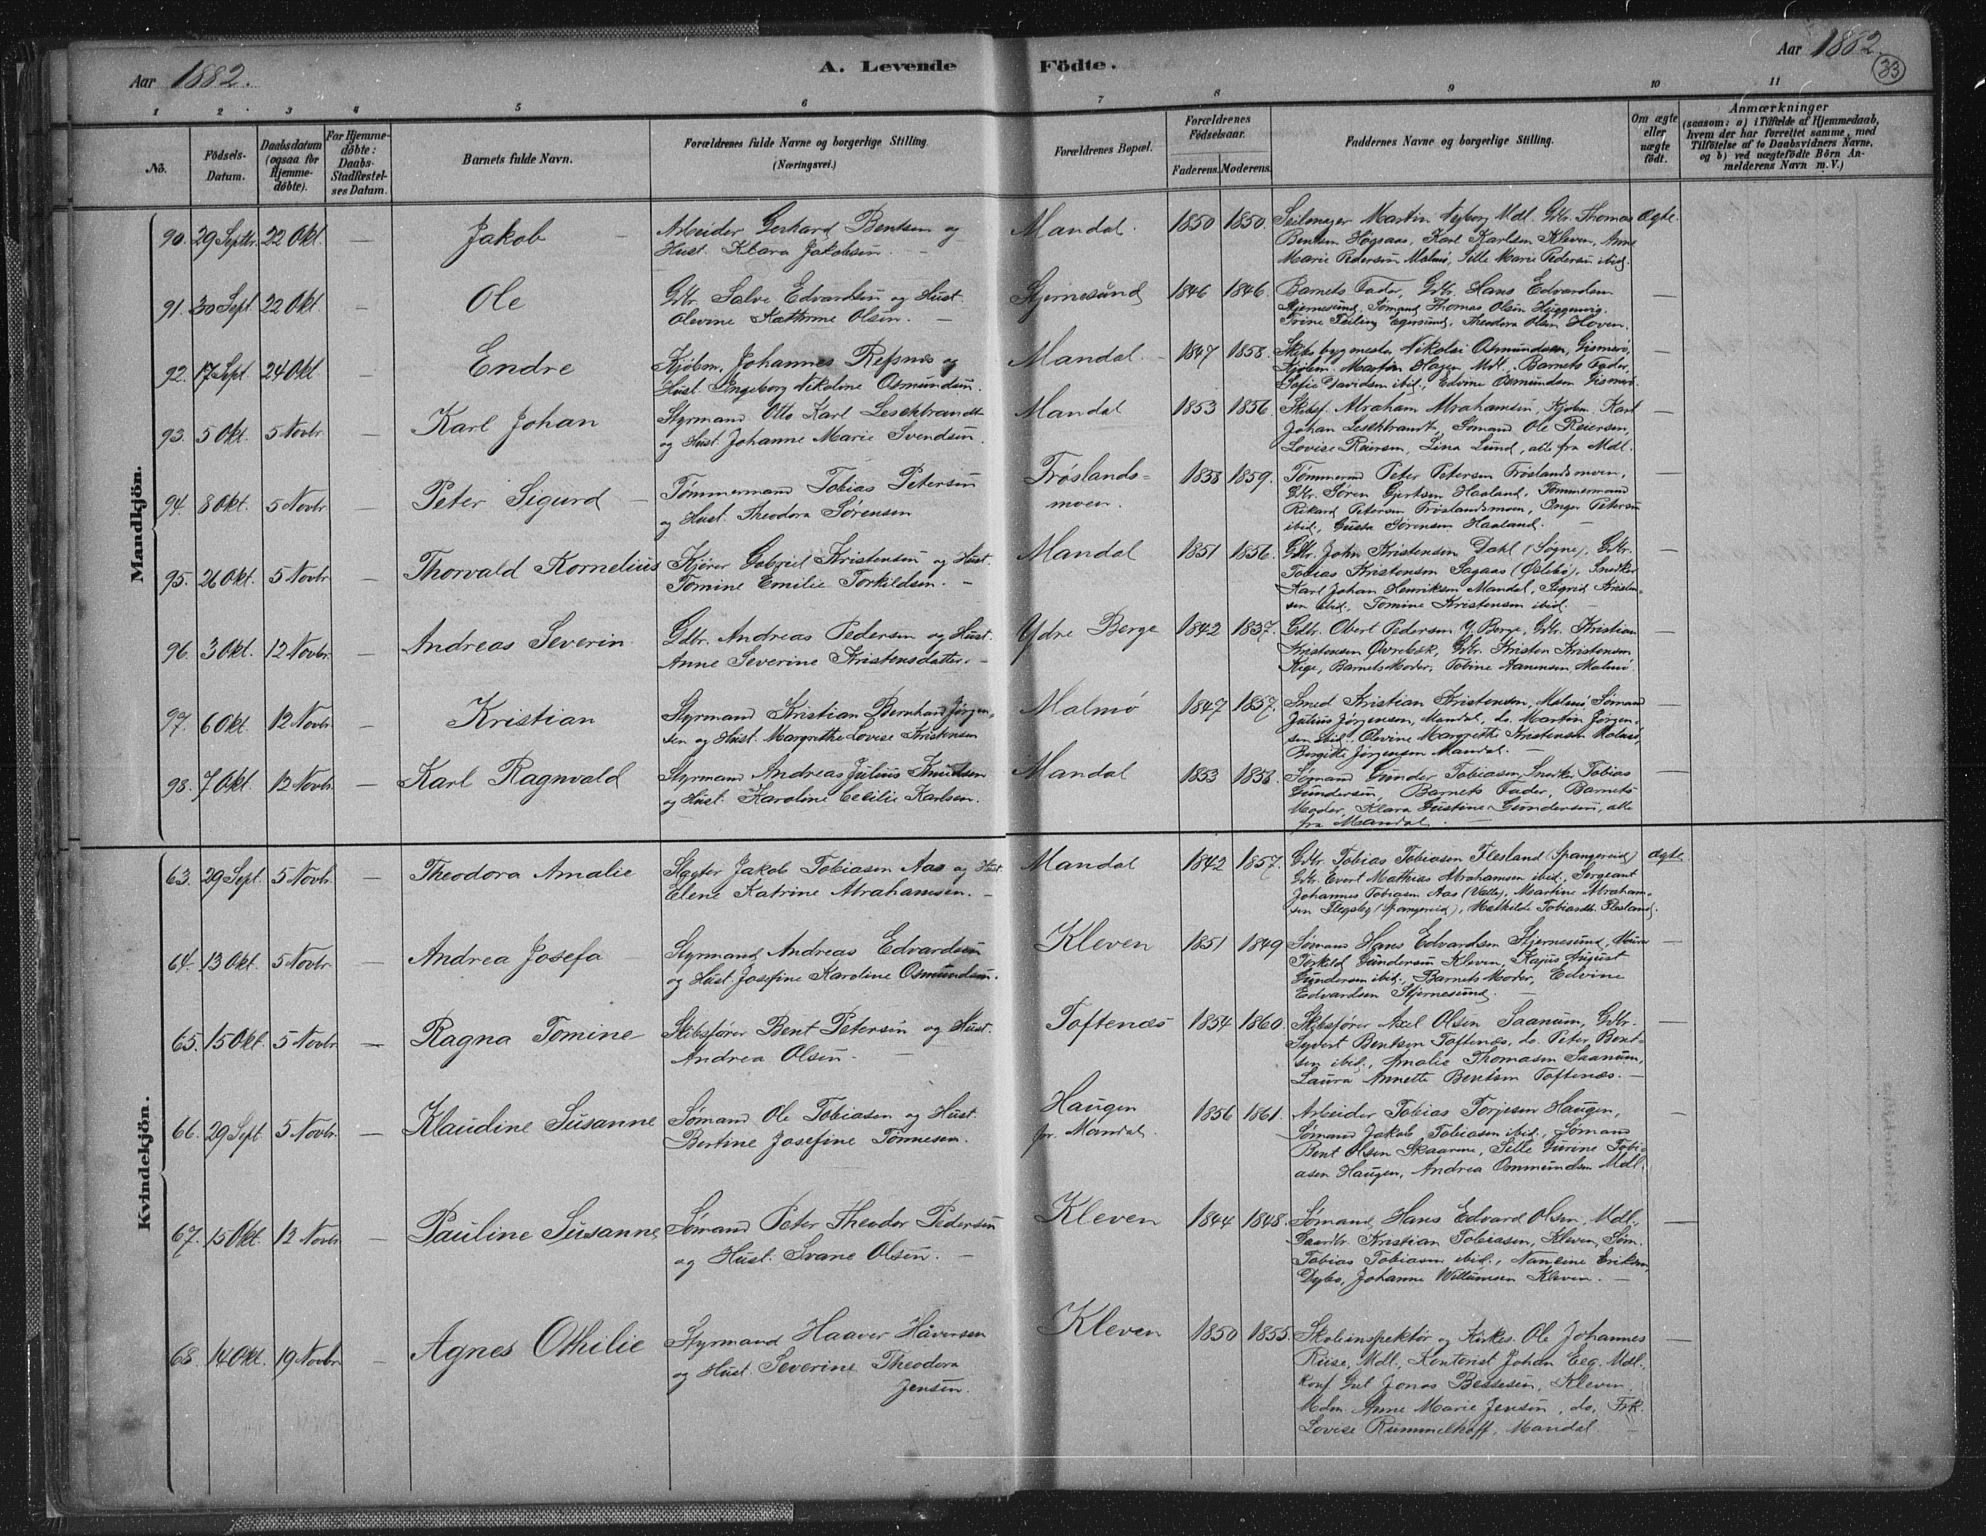 Aar 1882.
A. Levende Födte.
Aar 1882.
33
1 2 3 4 5 6 7 8 9 10 11
No.
Födsels-Datum.
Daabsdatum (ogsaa for Hjemmedöbte).
For Hjemmedöbte: Daabs-Stadfæstelses Datum.
Barnets fulde Navn.
Forældrenes fulde Navne og borgerlige Stilling. (Næringsvei.)
Forældrenes Bopæl.
Forældrenes Födselsaar.
Faderens. Moderens.
Faddernes Navne og borgerlige Stilling.
Om ægte eller uægte födt.
Anmærkninger
(saasom: a) i Tilfælde af Hjemmedaab, hvem der har forrettet samme, med Tilföielse af to Daabsvidners Navne, og b) ved uægtefödte Börn Anmelderens Navn m. V.)
Mandkjön.
90. 29 Septbr. 22 Okt. — Jakob — Arbeider Gerhard Bentsen og
Hust. Klara Jakobsen. — Mandal. 1850 1850. Seilmager Martin Nyborg Mdl. Gdbr. Thomas Ægte.
Bentsen Høgsaas, Karl Karlsen Kleven, Anne
Marie Pedersen Malmø, Sille Marie Pedersen ibid.
91. 30 Sept. 22 Okt — Ole Gdbr. Salve Edvardsen og Hust.
Olevine Kathrine Olsen. — Stjernesund 1846 1846. Barnets Fader, Gdbr. Hans Edvardsen —
Stjernesund, Sømand Thomas Olsen
Trine Egersund, Theodora Olsen Hoven.
92. 17 Sept 24 Okt — Endre Kjøbm. Johannes Refsnes og
Hust. Ingeborg Nikoline Osmundsen. Mandal. 1847 1858. Skibsbygmester Nikolai Osmundsen, Gismerø, —
Kjøbm. Martin Hagen Mdl., Barnets Fader,
Sofie Davidsen ibid., Edvine Osmundsen Gismerø.
93. 5 Okt. 5 Novbr. — Karl Johan Styrmand Otto Karl Leschbrandt
og Hust. Johanne Marie Svendsen. Mandal 1853 1856. Skibsf. Abraham Abrahamsen, Kjøbm. Karl —
Johan Leschbrandt, Sømand Ole Reiersen,
Lovise Reiersen, Lina Lund, alle fra Mdl.
94. 8 Okt. 5 Novbr — Peter Sigurd — Tømmermand Tobias Petersen
og Hust. Theodora Sørensen Frøslands-
moen. 1858 1859. Tømmermd Peter Petersen Frøslandsmoen, —
Gdbr. Søren Gjertsen Haaland, Tømmermand
Rikard Petersen Frøslandsmoen, Inger Petersen
ibid., Gusta Sørensen Haaland. —
95. 26 Okt. 5 Novbr — Thorvald Kornelius Kjører Gabriel Kristensen og Hust.
Tomine Emilie Torkildsen. — Mandal 1851 1856. Gdbr. John Kristensen Dahl (Sogne), Gdbr. —
Tobias Kristensen Sagaas (Øslebø), Snedker
Karl Johan Henriksen Mandal, Sigrid Kristen-
sen ibid., Tomine Kristensen ibid. —
96. 3 Okt. 12 Novbr. — Andreas Severin. Gdbr. Andreas Pedersen og Hust.
Anne Severine Kristensdatter. — Ydre Berge 1842 1837. Gdbr. Obert Pedersen Y. Berge, Gdbr. Kristian —
Kristensen Øvrebøk, Gdbr. Kristen Kristensen
Kige, Barnets Moder, Tobine Aanensen, Malmø.
97. 6 Okt 12 Novbr. — Kristian Styrmand Kristian Bernhard Jørgen-
sen og Hust. Margrethe Lovise Kristensen Malmø 1847 1857. Smed Kristian Kristensen, Malmø, Sømand —
Julius Jørgensen, Mandal, do. Martin Jørgen-
sen ibid., Olevine Margrethe Kristensen Malmø,
Bergitte Jørgensen Mandal. —
98. 7 Okt. 12 Novbr. — Karl Ragnvald Styrmand Andreas Julius Knudsen
og Hust. Karoline Cecilie Karlsen. Mandal 1853 1858. Sømand Gunder Tobiasen, Snedker Tobias —
Gundersen, Barnets Fader, Barnets
Moder, Klara Justine Gundersen, alle
fra Mandal. —
Kvindekjön.
63. 29 Sept. 5 Novbr — Theodora Amalie Slagter Jakob Tobiasen Aas og Hust.
Elene Katrine Abrahamsen. — Mandal 1842 1857. Gdbr. Tobias Tobiasen Flesland (Spangereid) Ægte
Gdbr. Evert Mathias Abrahamsen ibid., Sergeant
Johannes Tobiasen Aas (Valle), Martine Abraham-
sen (Spangereid), Mathilde Tobiasdtr. Flesland.
64. 13 Okt. 5 Novbr. — Andrea Josefa Styrmand Andreas Edvardsen
og Hust. Josefine Karoline Osmundsen. Kleven 1851 1849 Sømand Hans Edvardsen Stjernesund, Murer —
Torkild Gundersen Kleven, Kajus August
Gundersen ibid., Barnets Moder, Edvine
Edvardsen Stjernesund. —
65. 15 Okt. 5 Novbr — Ragna Tomine Skibsfører Bent Petersen og Hust.
Andrea Olsen. — Toftenæs 1854 1860. Skibsfører Axel Olsen Saanum, Gdbr. —
Syvert Bentsen Toftenæs, do. Peter Bent-
sen ibid., Amalie Thomasen Saanum,
Laura Annette Bentsen Toftenæs. —
66. 29 Sept 5 Novbr. — Klaudine Susanne Sømand Ole Tobiasen og Hust.
Bertine Josefine Tønnesen. Haugen
pr. Mandal. 1856 1861. Arbeider Tobias Torjesen Haugen, —
Sømand Jakob Tobiasen ibid., Sømand
Bent Olsen Skaarene, Sille Gurine Tobi-
asen Haugen, Andrea Ommundsen Mdl.
67. 15 Okt. 12 Novbr — Pauline Susanne Sømand Peter Theodor Pedersen
og Hust. Svane Olsen. — Kleven 1844 1848. Sømand Hans Edvard Olsen, Mdl., —
Gaardbr. Kristian Tobiasen, Kleven, Søm.
Tobias Tobiasen ibid., Nancine Eriksen
Dybo, Johanne Willumsen Kleven. —
68. 14 Okt. 19 Novbr. — Agnes Othilie Styrmand Haaver Håversen
og Hust. Severine Theodora
Jensen. Kleven 1850 1855. Skoleinspektør og Kirkes. Ole Johannes —
Riise, Mdl., Kontorist Johan Eeg, Mdl.
Jonas Bessesen, Kleven,
Mdm. Anne Marie Jensen, do, Frk.
Lovise Rummelhoff, Mandal. —